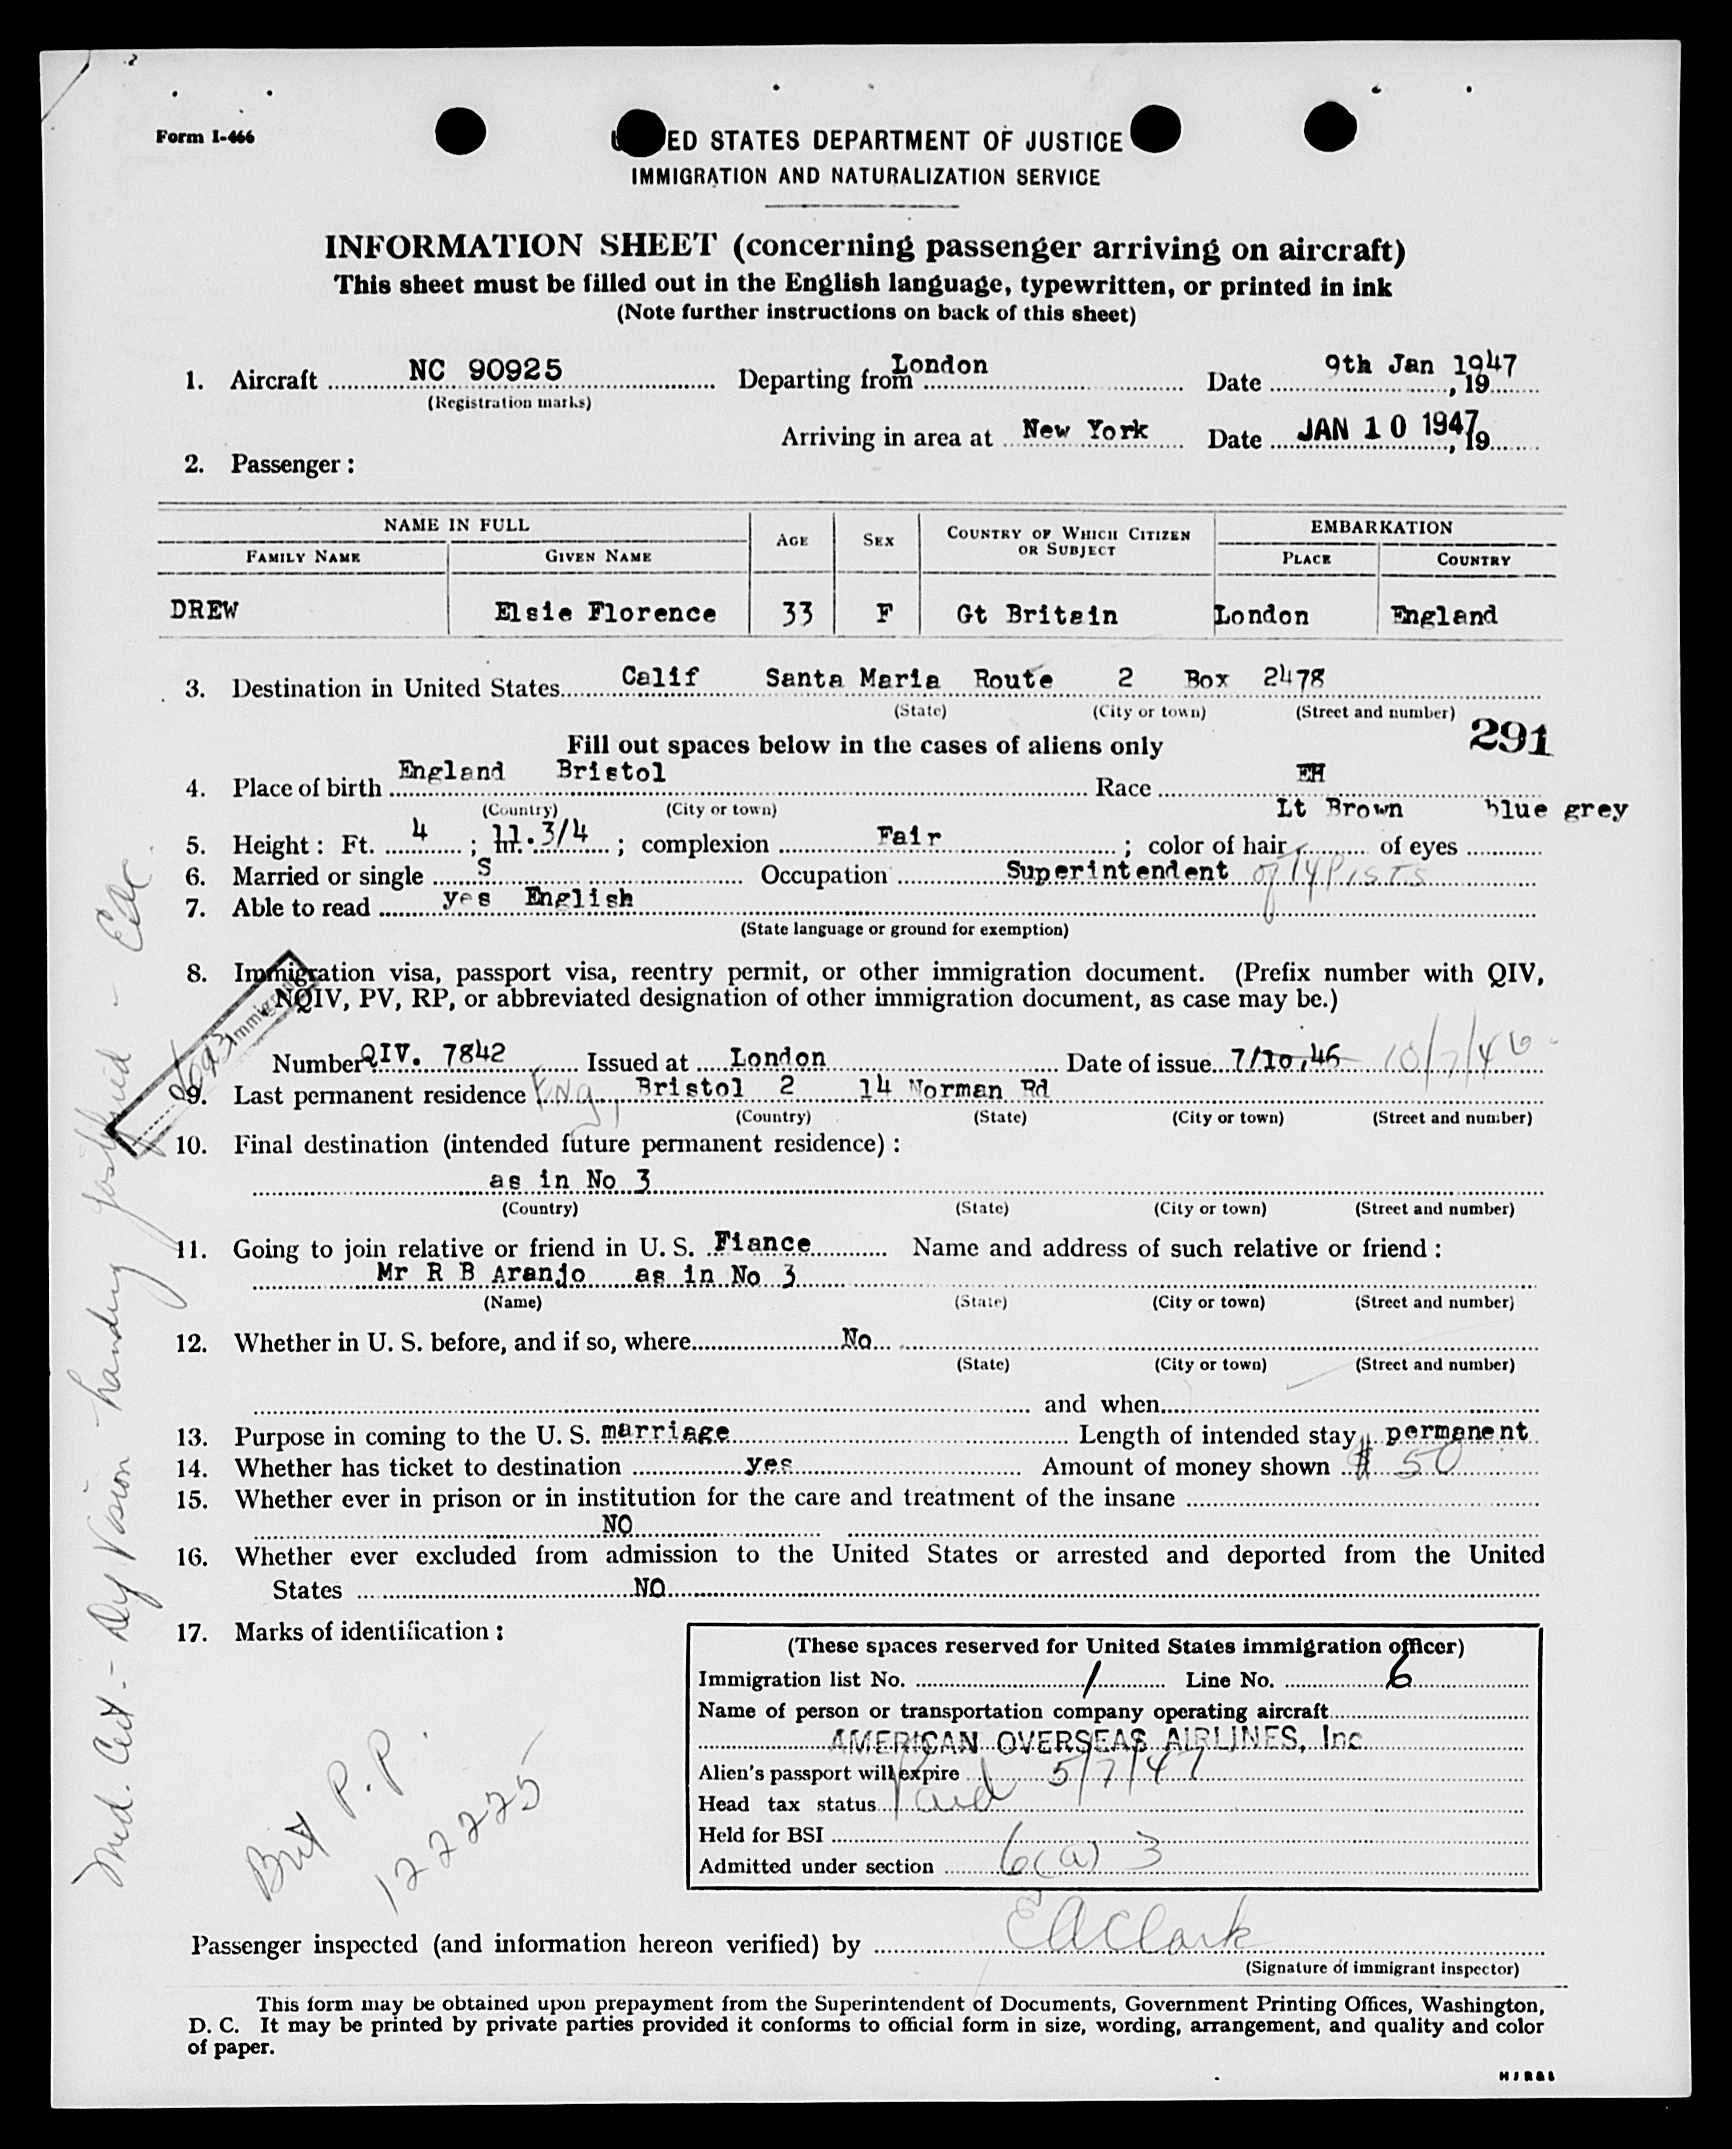 Form I-466
ED STATES DEPARTMENT OF JUSTICE
IMMIGRATION AND NATURALIZATION SERVICE
INFORMATION SHEET (concerning passenger arriving on aircraft)
This sheet must be filled out in the English language, typewritten, or printed in ink
(Note further instructions on back of this sheet)
1. Aircraft NC 90925 Departing from London Date 9th Jan 1947, 19
(Registration marks)
Arriving in area at New York Date JAN 10 1947, 19
2. Passenger:
NAME IN FULL AGE SEX COUNTRY OF WHICH CITIZEN OR SUBJECT EMBARKATION
FAMILY NAME GIVEN NAME PLACE COUNTRY
DREW Elsie Florence 33 F Gt Britain London England
3. Destination in United States Calif Santa Maria Route 2 Box 2478
(State) (City or town) (Street and number)
291
Fill out spaces below in the cases of aliens only
4. Place of birth England Bristol Race EH
(Country) (City or town)
Lt Brown blue grey
5. Height: Ft. 4; In. 11.3/4; complexion Fair; color of hair of eyes
6. Married or single S Occupation Superintendent of TYPISTS
7. Able to read yes English
(State language or ground for exemption)
8. Immigration visa, passport visa, reentry permit, or other immigration document. (Prefix number with QIV,
NQIV, PV, RP, or abbreviated designation of other immigration document, as case may be.)
Number QIV. 7842 Issued at London Date of issue 7/10,46 10/7/46
9. Last permanent residence Eng, Bristol 2 14 Norman Rd
(Country) (State) (City or town) (Street and number)
10. Final destination (intended future permanent residence):
as in No 3
(Country) (State) (City or town) (Street and number)
11. Going to join relative or friend in U. S. Fiance Name and address of such relative or friend:
Mr R B Aranjo as in No 3
(Name) (State) (City or town) (Street and number)
12. Whether in U. S. before, and if so, where No
(State) (City or town) (Street and number)
and when
13. Purpose in coming to the U. S. marriage Length of intended stay permanent
14. Whether has ticket to destination yes Amount of money shown $ 50
15. Whether ever in prison or in institution for the care and treatment of the insane
NO
16. Whether ever excluded from admission to the United States or arrested and deported from the United
States NO
17. Marks of identification:
(These spaces reserved for United States immigration officer)
Immigration list No. 1 Line No. 6
Name of person or transportation company operating aircraft
AMERICAN OVERSEAS AIRLINES, Inc
Alien's passport will expire 5/7/47
Head tax status Paid
Held for BSI
Admitted under section 6(a) 3
Brit P.P.
122225
Med. Cert - Def Vision
Passenger inspected (and information hereon verified) by EAClark
(Signature of immigrant inspector)
This form may be obtained upon prepayment from the Superintendent of Documents, Government Printing Offices, Washington,
D. C. It may be printed by private parties provided it conforms to official form in size, wording, arrangement, and quality and color
of paper.